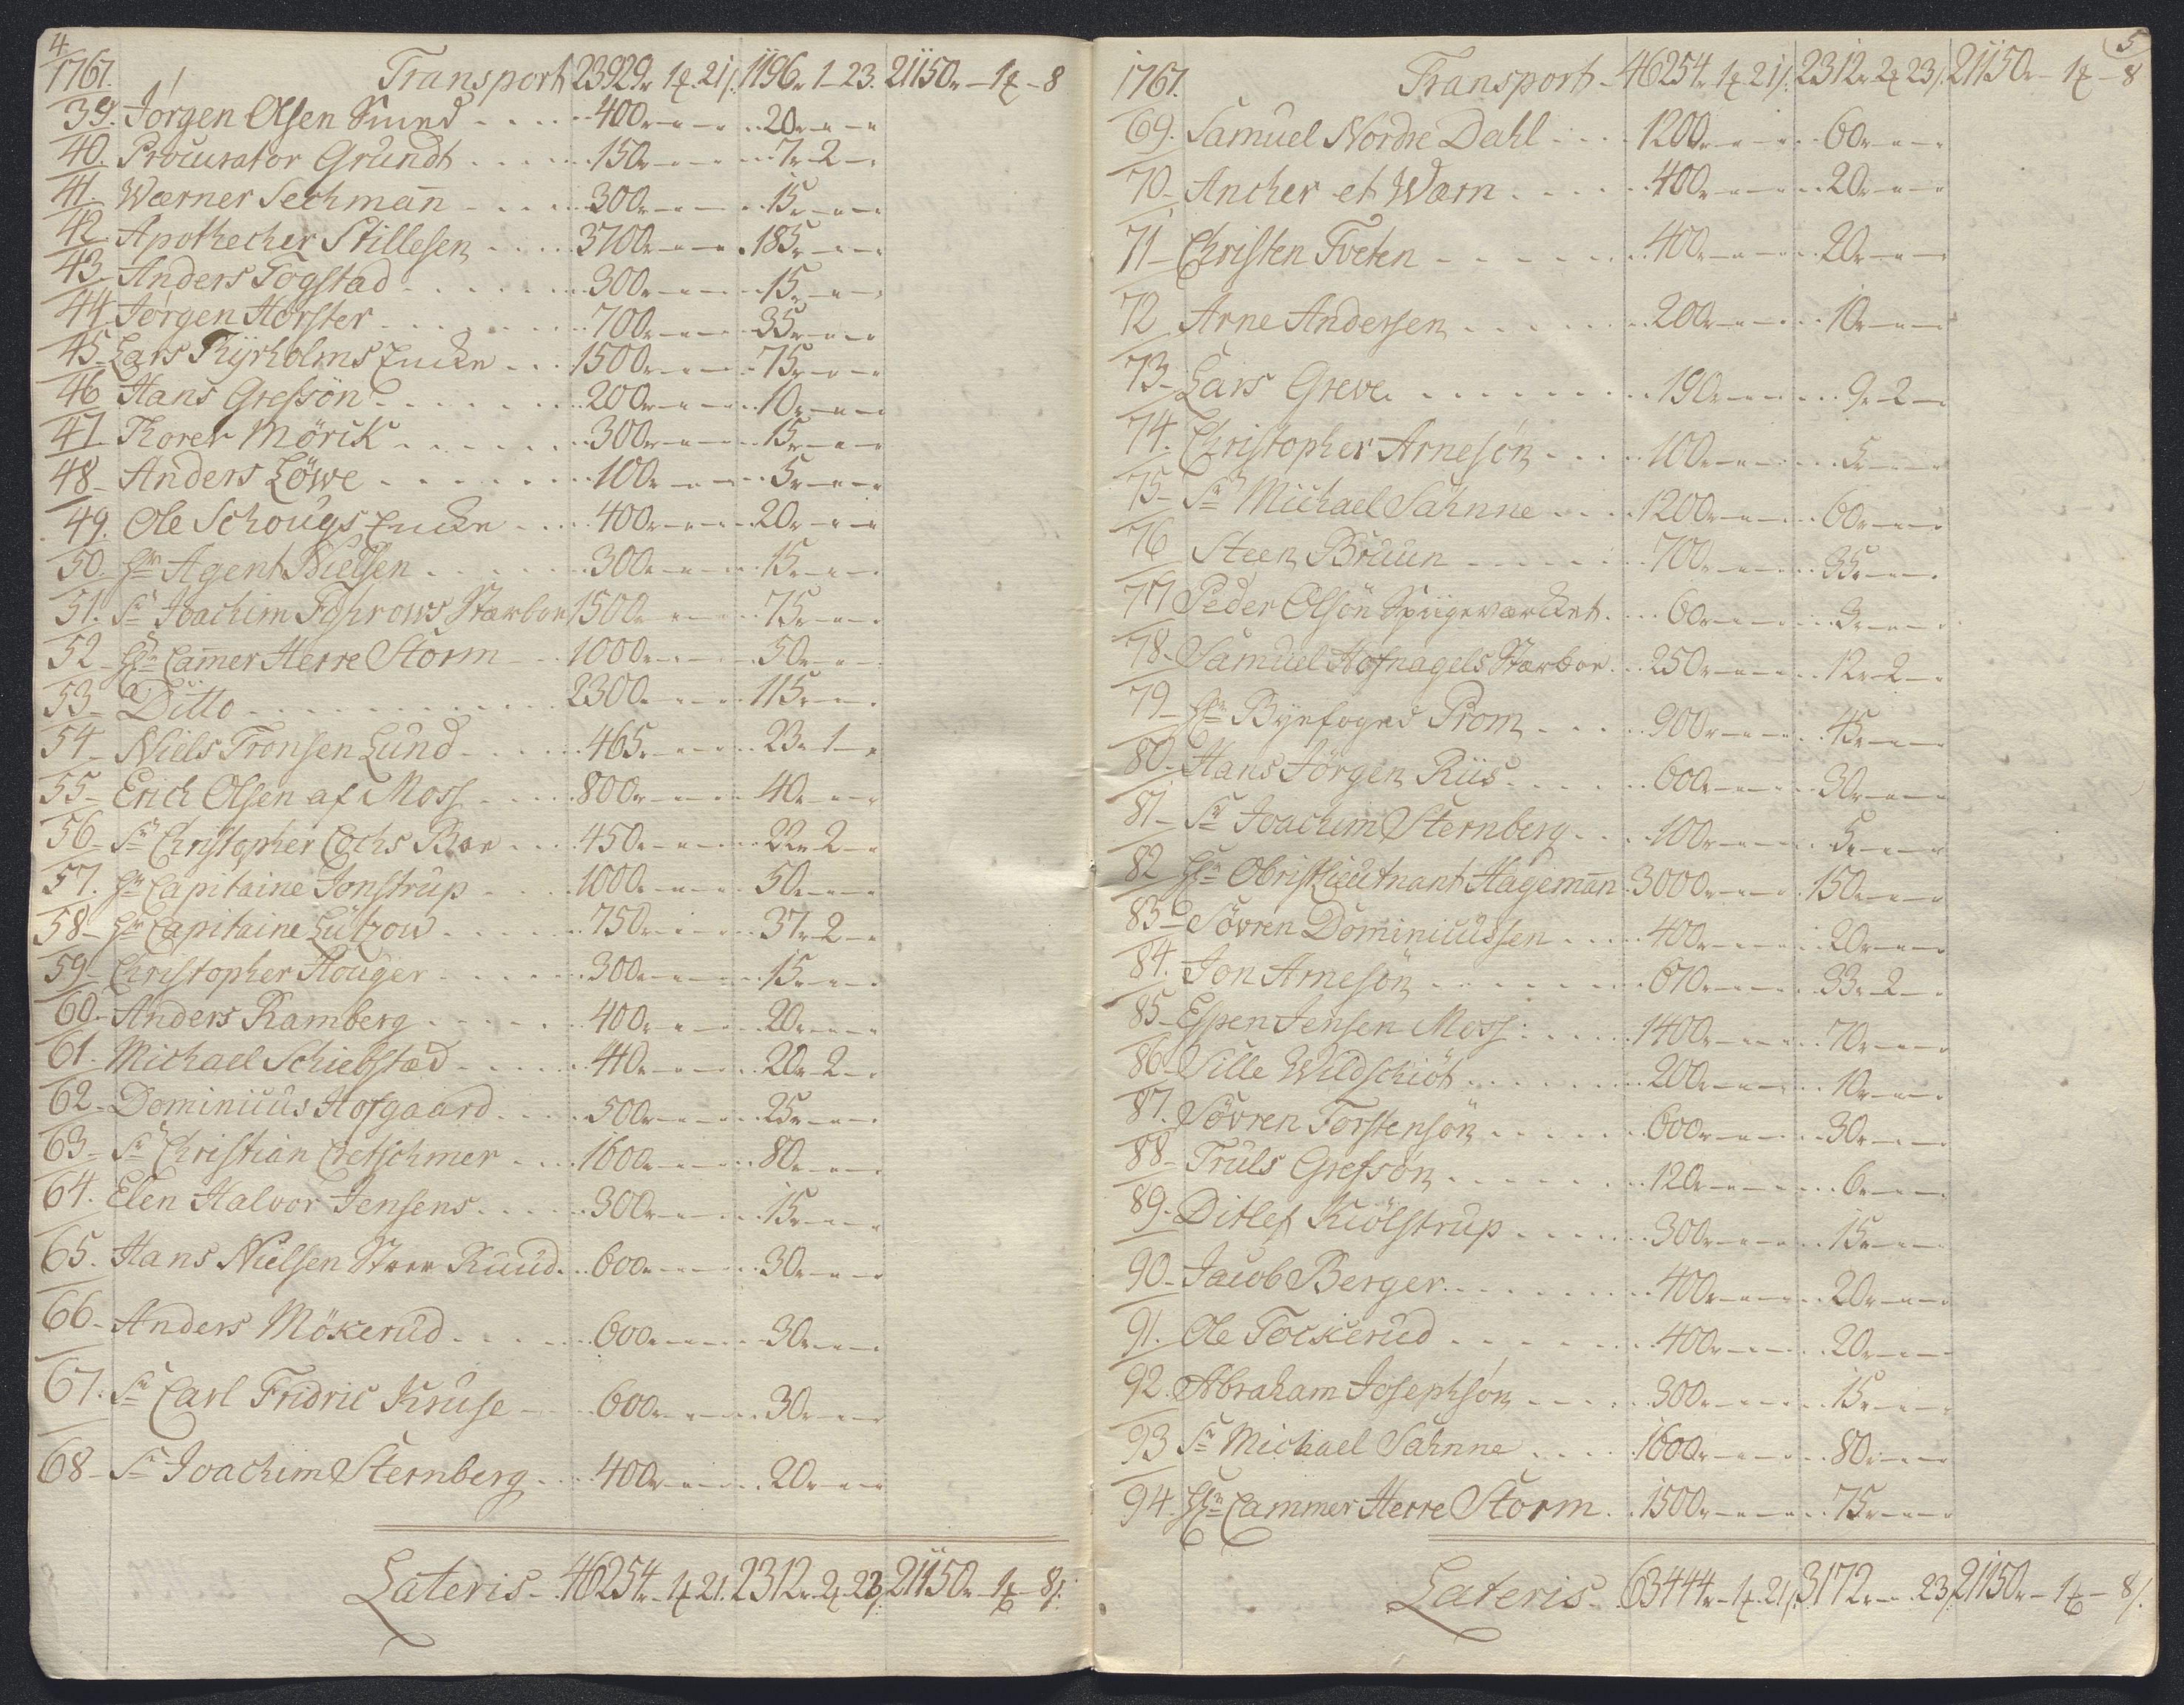 4
1767. Transport 23929r 1ꝥ 21/. 1196r 1 - 23. 21150r - 1ꝥ - 8
39. Jørgen Olsen Smed - - - - 400r - - - 20r - -
40. Procurator Grundt - - - - 150r - - - 7r 2 -
41. Wærner Sechman̅ - - - - 300r - - - 15r - -
42. Apothecher Stillesen - - - - 3700r - - - 185r - -
43. Anders Togstad - - - - 300r - - - 15r - -
44. Jørgen Horster - - - - 700r - - - 35r - -
45. Lars Thyrholms Encke - - 1500r - - - 75r - -
46 Hans Grefsön - - - - 200r - - - 10r - -
47. Thorer Mörck - - - - 300r - - - 15r - -
48 - Anders Löwe - - - - 100r - - - 5r - -
49. Ole Schougs Encke - - - 400r - - - 20r - -
50. Hr Agent Nielsen - - - - 300r - - - 15r - -
51. Sr Joachim Stærboe 1500r - - - 75r - -
52 - Hr Cam̅er Herre Storm - - 1000r - - - 50r - -
53 - Ditto - - - - 2300r - - - 115r - -
54 - Niels Tronsen Lund - - - 465r - - - 23r 1 -
55 - Erich Olsen af Moss - - - 800r - - - 40r - -
56 - Sr Christopher Cochs Boe - - 450r - - - 22r 2 -
57. Hr Capitaine Jonstrup - - 1000r - - - 50r - -
58 - Hr Capitaine Lützow - - - 750r - - - 37r 2 -
59 - Christopher Houger - - - 300r - - - 15r - -
60. Anders Ramberg - - - - 400r - - - 20r - -
61. Michael Schiebsted - - - 410r - - - 20r 2 -
62 - Dominicus Hofgaard - - 500r - - - 25r - -
63 - Sr Christian Cretschmer - - 1600r - - - 80r - -
64. Elen Halvor Jensens - - - 300r - - - 15r - -
65. Hans Nielsen Ruud - - 600r - - - 30r - -
66 - Anders Mökerud - - - 600r - - - 30r - -
67. Sr Carl Fridric Kruse - - 600r - - - 30r - -
68 - Sr Joachim Sternberg - - 400r - - - 20r - -
Lateris - 46254r - 1ꝥ 21. 2312r 2ꝥ 23/. 21150r - 1ꝥ - 8/.
5
1767. Transport - 46254r 1ꝥ 21/. 2312r 2ꝥ 23/. 21150r - 1ꝥ - 8
69. Samuel Nordre Dahl - - - 1200r - - - 60r - -
70 - Ancher et Wærn - - - - 400r - - - 20r - -
71 - Christen Tveten - - - - 400r - - - 20r - -
72 Arne Andersen - - - - 200r - - - 10r - -
73 - Lars Greve - - - - 190r - - - 9r 2 -
74. Christopher Arnesön - - - 100r - - - 5r - -
75 - Sr Michael Sahnne - - - 1200r - - - 60r - -
76 Steen Bruun - - - - 700r - - - 35r - -
77 Peder Olsön Spiigerværcket - - 60r - - - 3r - -
78 - Samuel Hofnagels Stærboe - - 250r - - - 12r 2 -
79 - Hr Byefoged Prom - - - 900r - - - 45r - -
80. Hans Jörgen Riis - - - 600r - - - 30r - -
81 - Sr Joachim Sternberg - - - 100r - - - 5r - -
82 Hr Obristlieutnant Hageman̅ - 3000r - - - 150r - -
83 - Sövren Dominicussen - - - 400r - - - 20r - -
84. Jon Arnesön - - - - 670r - - - 33r 2 -
85 - Espen Jensen Moss - - - 1400r - - - 70r - -
86 - Sille Wildschiöt - - - - 200r - - - 10r - -
87. Sövren Torstensön - - - 600r - - - 30r - -
88 - Truls Grefsön - - - - 120r - - - 6r - -
89. Ditlef Kiölstrup - - - - 300r - - - 15r - -
90 - Jacob Berger - - - - 400r - - - 20r - -
91. Ole Tockerud - - - - 400r - - - 20r - -
92. Abraham Josephsön - - - 300r - - - 15r - -
93 Sr Michael Sahnne - - - 1600r - - - 80r - -
94. Hr Cammer Herre Storm - - 1500r - - - 75r - -
Lateris - 63444r - 1ꝥ 21/. 3172r - - 23/. 21150r - 1ꝥ - 8/.